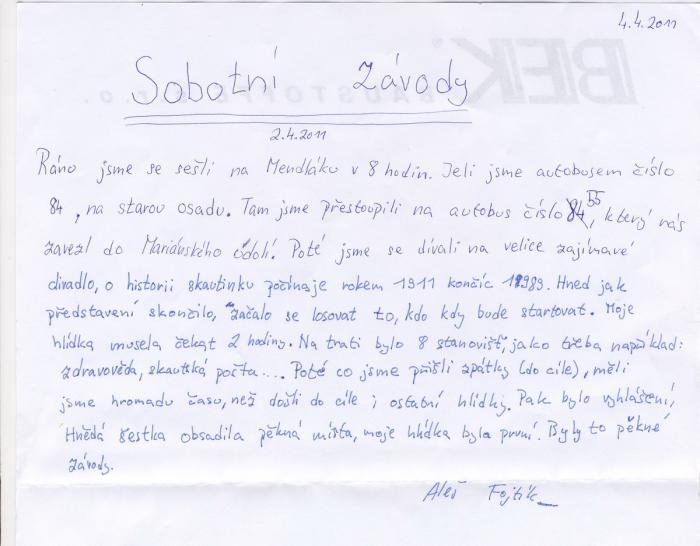 4.4.2011
Sobotní závody
2.4.2011
Ráno jsme se sešli na Mendláku v 8 hodin. Jeli jsme autobusem číslo
84, na starou osadu. Tam jsme přestoupili na autobus číslo 55, který nás
zavezl do Mariánského údolí. Poté jsme se dívali na velice zajímavé
divadlo, o historii skautinku počínaje rokem 1911 končíc 1989. Hned jak
představení skončilo, začalo se losovat to, kdo kdy bude startovat. Moje
hlídka musela čekat 2 hodiny. Na trati bylo 8 stanovišť, jako třeba například:
zdravověda, skautská pošta.... Poté co jsme přišli zpátky (do cíle), měli
jsme hromadu času, než došli do cíle i ostatní hlídky. Pak bylo vyhlášení,
Hnědá šestka obsadila pěkná místa, moje hlídka byla první. Byly to pěkné
závody.
Aleš Fojtík